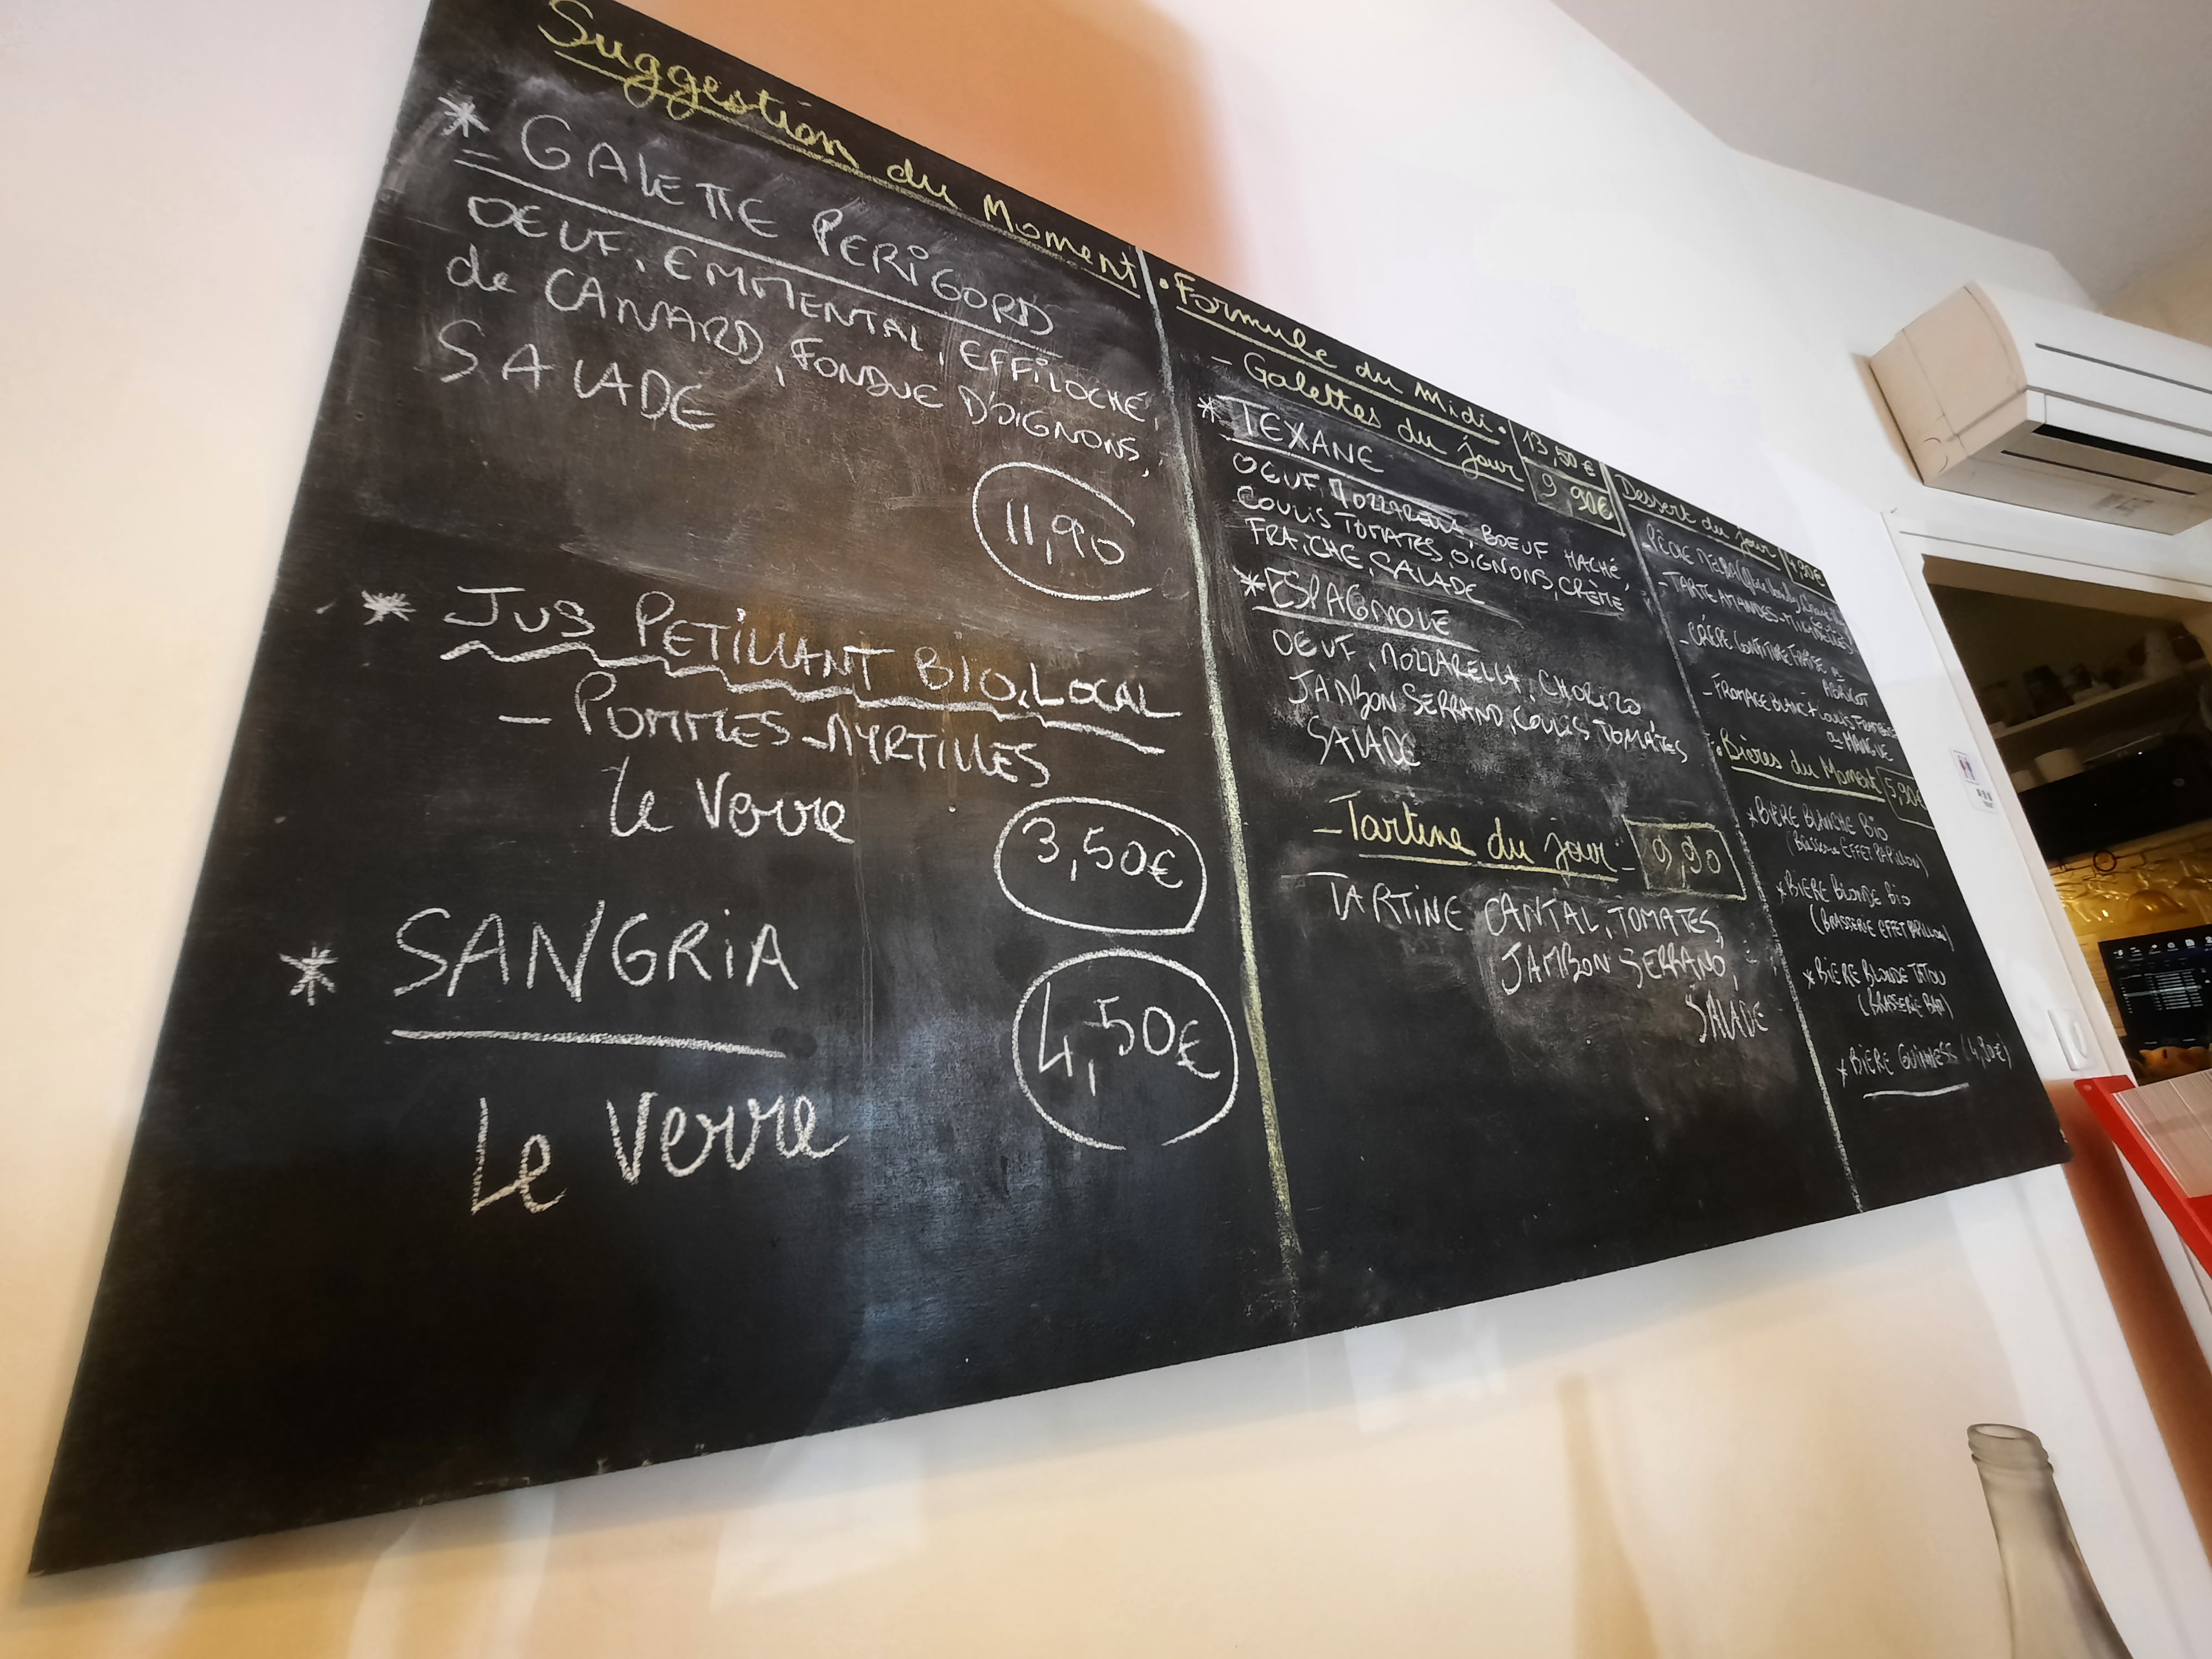 Suggestion du Moment
* - GALETTE PERIGORD
OEUF, EMMENTAL, EFFILOCHÉ,
de CANARD, FONDUE D'OIGNONS,
SALADE
11,90
* JUS PETILLANT BIO, LOCAL
- POMMES - MYRTILLES
le Verre
3,50€
* SANGRIA
4,50€
Le Verre
• Formule du midi • 13,50€
- Galettes du jour 9,90€
* TEXANE
OEUF, MOZZARELLA, BOEUF HACHÉ,
COULIS TOMATES, OIGNONS, CRÈME
FRAICHE, SALADE
* ESPAGNOLE
OEUF, MOZZARELLA, CHORIZO,
JAMBON SERRANO, COULIS TOMATES
SALADE
- Tartine du jour - 9,90
TARTINE CANTAL, TOMATES,
JAMBON SERRANO,
SALADE
Dessert du jour 4,90€
PÊCHE MELBA
- TARTE AMANDES -
- CRÊPE CONFITURE FRAISE ou
ABRICOT
- FROMAGE BLANC + COULIS
ou MANGUE
• Bières du Moment 5,90€
* BIERE BLANCHE BIO
(Brasserie EFFET PAPILLON)
* BIERE BLONDE BIO
(BRASSERIE EFFET PAPILLON)
* BIERE BLONDE TATOU
(BRASSERIE)
* BIERE GUINNESS (4,80€)